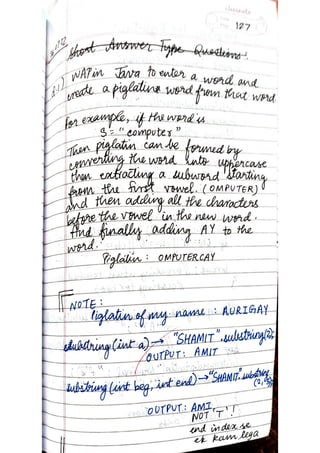 127
Short Answer Type Questions.
WAP in Java to enter a word and
create a piglatin word from that word
For example, if the word is
S = "computer"
Then piglatin can be formed by
converting the word into uppercase
then extracting a subword starting
from the first vowel. (OMPUTER)
and then adding all the characters
before the vowel in the new word.
And finally adding AY to the
word.
Piglatin : OMPUTERCAY
NOTE :
Piglatin of my name : AURIGAY
substring (int a) → "SHAMIT".substring(2);
OUTPUT: AMIT
substring (int beg, int end) → "SHAMIT".substring
OUTPUT: AMI
NOT 'T'!
end index se
ek kam lega